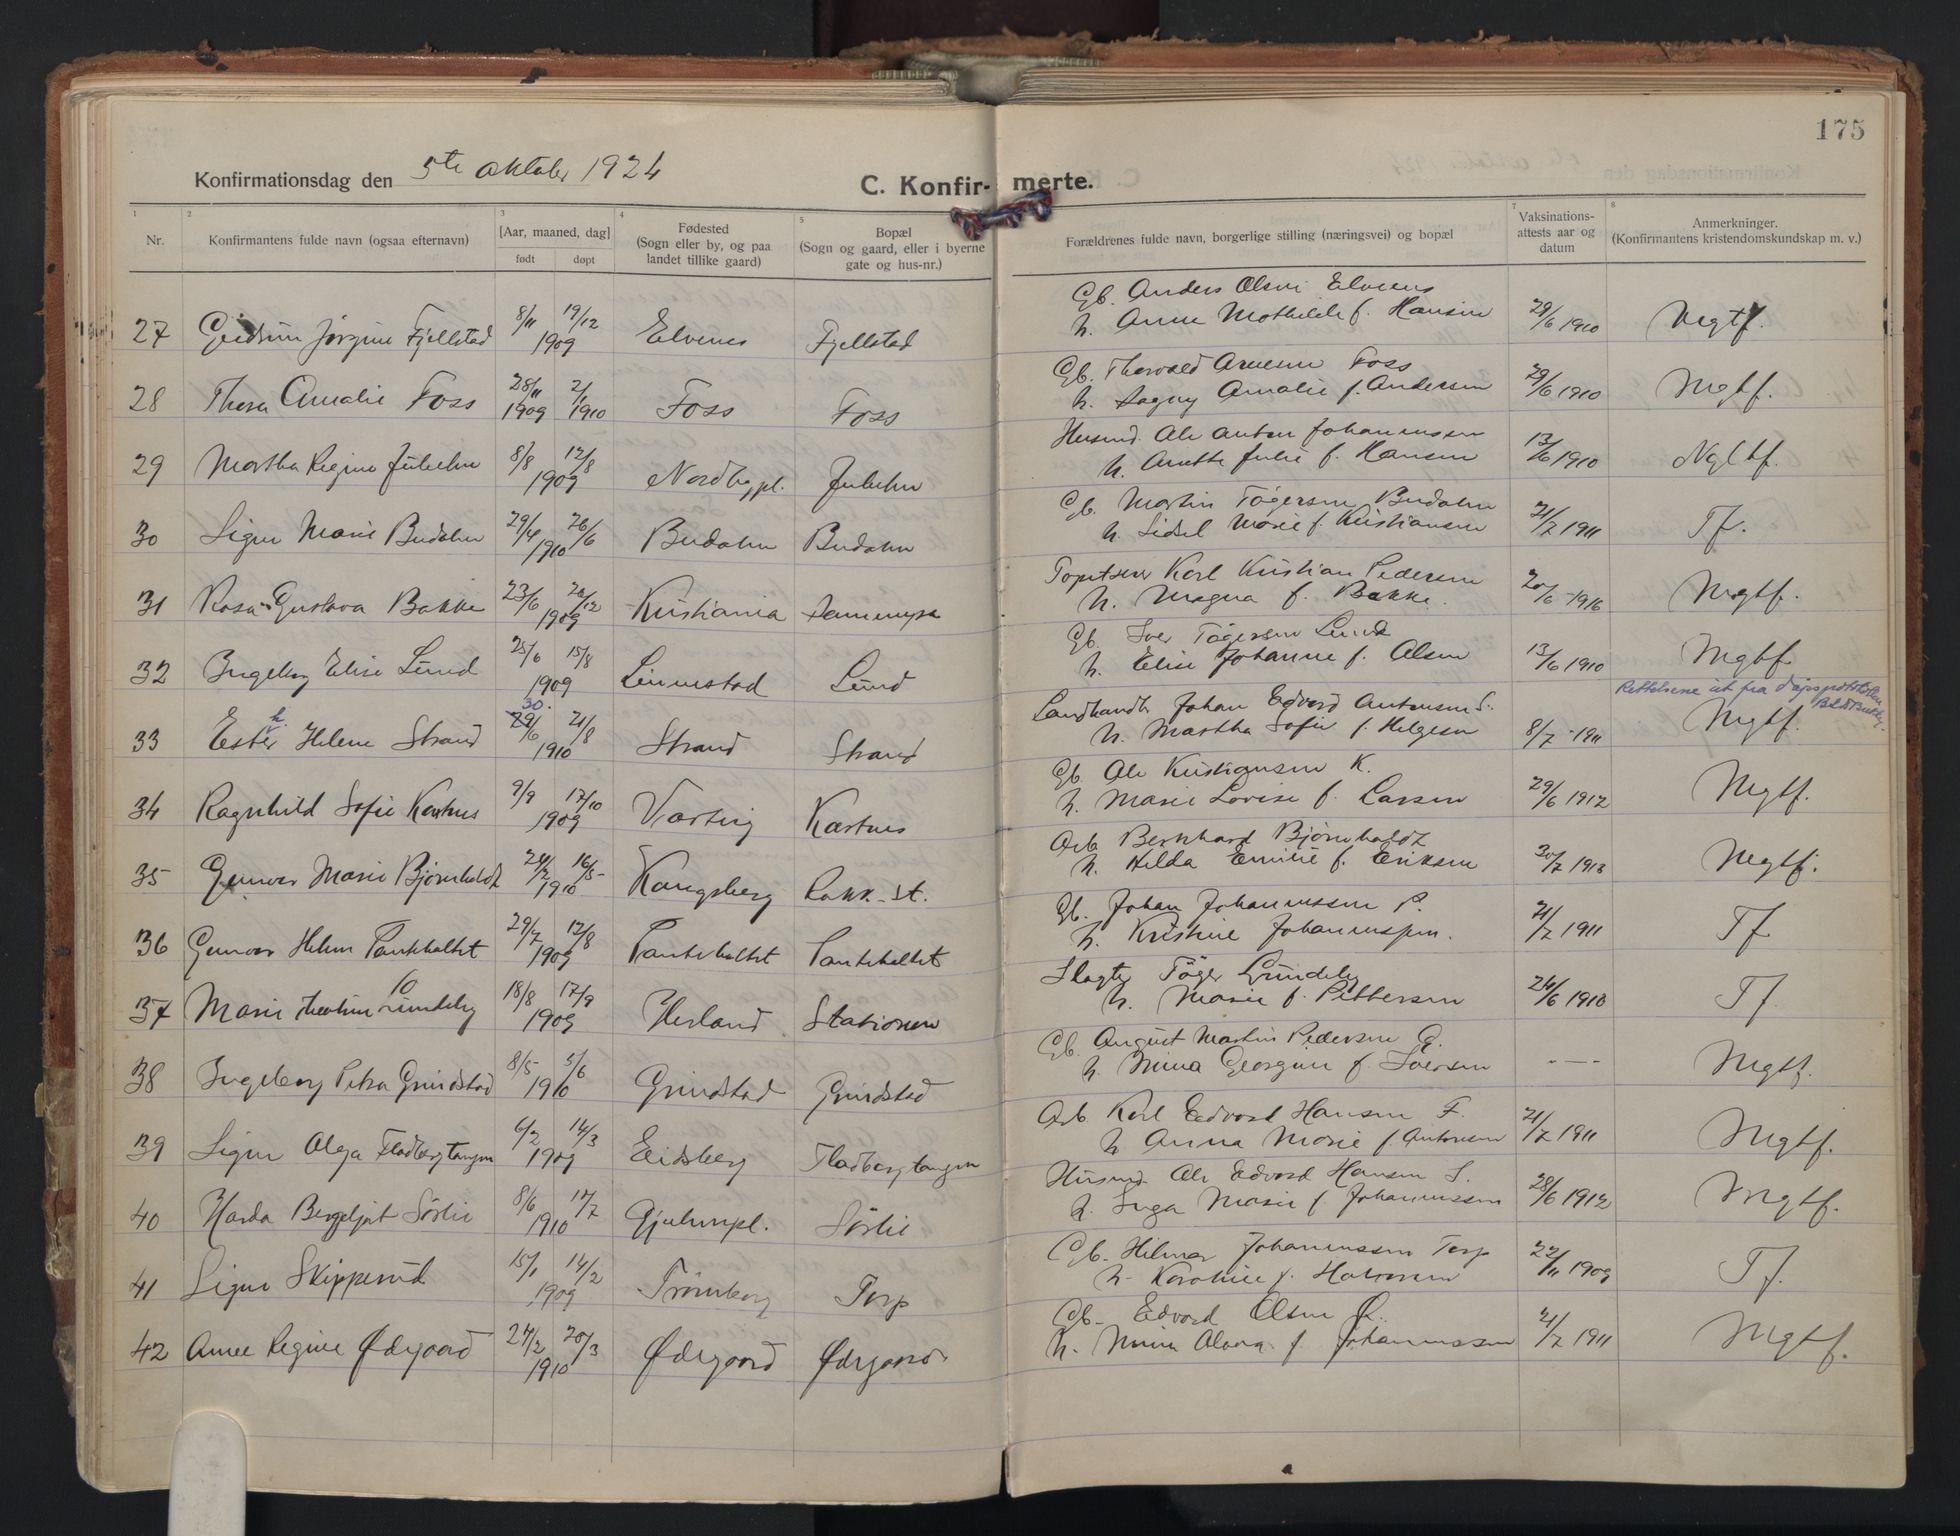 175
Konfirmationsdag den 5te Oktober 1924
C. Konfir- merte.
1 2 3 4 5 7 8
Nr.
Konfirmantens fulde navn (ogsaa efternavn)
[Aar, maaned, dag]
født døpt
Fødested
(Sogn eller by, og paa
landet tillike gaard)
Bopæl
(Sogn og gaard, eller i byerne
gate og hus-nr.)
Forældrenes fulde navn, borgerlige stilling (næringsvei) og bopæl
Vaksinations-
attests aar og
datum
Anmerkninger.
(Konfirmantens kristendomskundskap m. v.)
Gb. Anders Olsen Elvenes
27 Gudrun Jørgine Fjellstad 8/11 19/12 1909 Elvenes Fjellstad h. Anne Mathilde f. Hansen 29/6 1910 Mgtf.
Gb. Thorvald Arnesen Foss
28 Thora Amalie Foss 28/11 1909 2/1 1910 Foss Foss h. Dagny Amalie f. Andersen 29/6 1910 Mgtf.
Husmd. Ole Anton Johannessen
29 Martha Regine Julielm 8/8 12/8 1909 Nordbypl. h. Anette Julie f. Hansen 13/6 1910 Ngltf.
Gb. Martin Tøgersen Budalen
30 Signe Marie Budalen 29/4 26/6 1910 Budalen Budalen h. Sidsel Marie f. Kristiansen 21/7 1911 Tf.
Karl Kristian Pedersen
31 Rosa Gustava Bakke 23/6 26/12 1909 Kristiania Dammyra h. Magna f. Bakke. 20/6 1916 Mgtf.
Gb. Iver Tøgersen Lund
32 Ingeborg Elise Lund 25/6 15/8 1909 Linnestad Lund h. Elise Johanne f. Olsen 13/6 1910 Mgtf
Rettelsene ut fra dåpsprotokollen
Landhandl. Johan Edvard Antonsen S.
33 Ester h. Helene Strand 30. 29/6 21/8 1910 Strand Strand h. Martha Sofie f. Helgesen 8/7 1911 Mgtf.
Gb. Ole Kristiansen K.
34 Ragnhild Sofie Kastnes 9/9 17/10 1909 Kastnes h. Marie Lovise f. Larsen 29/6 1912 Mgtf.
Arb Bernhard Bjørnholdt
35 Gunvor Marie Bjørnholdt 24/2 16/5 1910 Kongsberg Rakk. st. h. Hilda Emilie f. Eriksen 30/7 1913 Mgtf.
Gb. Johan Johannessen P.
36 Gunvor Helene Panteholtet 29/7 12/8 1909 Panteholtet Panteholtet h. Kristine Johannessen. 21/7 1911 Tf
Slagter Tøger Grundeby
37 Marie Theoline Grundeby 18/8 17/9 1909 Herland Stationen h. Marie f. Pettersen 26/6 1910 Tf.
Gb. August Martin Pedersen G.
38 Ingeborg Petra Grindstad 8/5 5/6 1910 Grindstad Grindstad h. Mina Georgine f. Iversen - — - Mgtf.
Arb Karl Edvard Hansen F.
39 Signe Olga Fladbergtangen 6/2 14/3 1909 Eidsberg Fladbergtangen h Anna Marie f. Antonsen 21/7 1911 Mgtf.
Husmd. Ole Edvard Hansen S.
40 Harda Bergljot Sørlie 8/6 17/7 1910 Gjulempl. Sørlie h. Inga Marie f. Johannessen 28/6 1912 Mgtf.
Gb. Hilmar Johannessen Torp
41 Signe Skipperud 15/1 14/2 1909 Trømborg Torp h. Karoline f. Halvorsen 22/11 1909 Tf.
Gb. Edvard Olsen Ø.
42 Anne Regine Ødegaard 27/2 20/3 1910 Ødegaard Ødegaard h. Mina Alvina f. Johannessen 21/7 1911 Mgtf.